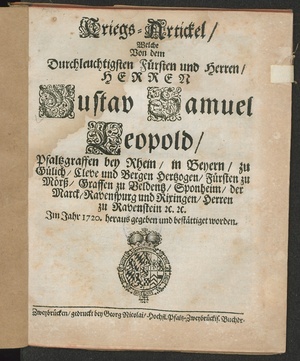 Kriegs-Artickel/
Welche
Von dem
Durchleuchtigsten Fürsten und Herren/
HERREN
Gustav Samuel
Leopold/
Pfaltzgraffen bey Rhein/ in Beyern/ zu
Gülich/ Cleve und Bergen Hertzogen/ Fürsten zu
Mörß/ Graffen zu Veldentz/ Sponheim/ der
Marck/ Ravenspurg und Rixingen/ Herren
zu Ravenstein ꝛc. ꝛc.
Im Jahr 1720. heraus gegeben und bestättiget worden.
Zweybrücken/ gedruckt bey Georg Nicolai/ Hochfl. Pfaltz-Zweybrückis. Buchdr.